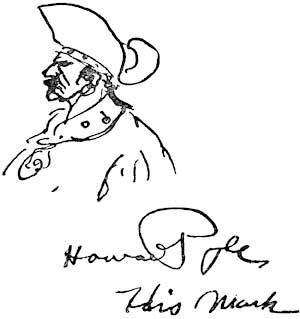 Howard Pyle,
His Mark